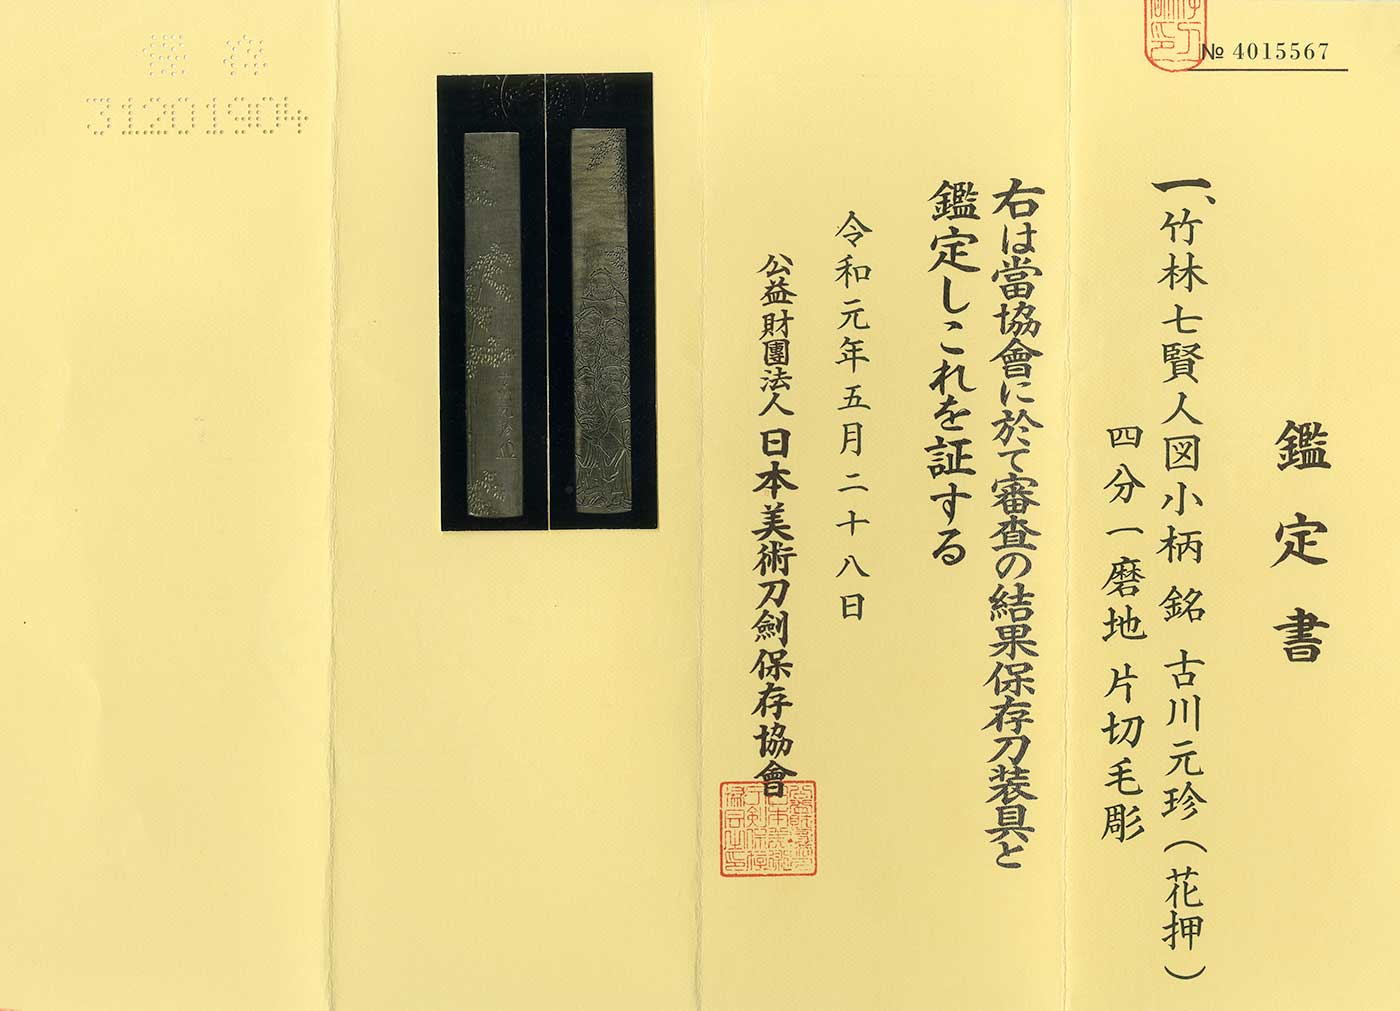 № 4015567
鑑定書
一、竹林七賢人図小柄 銘 古川元珍（花押）
四分一磨地 片切毛彫
右は當協會に於て審査の結果保存刀装具と
鑑定しこれを証する
令和元年五月二十八日
公益財團法人日本美術刀劍保存協會
31201904